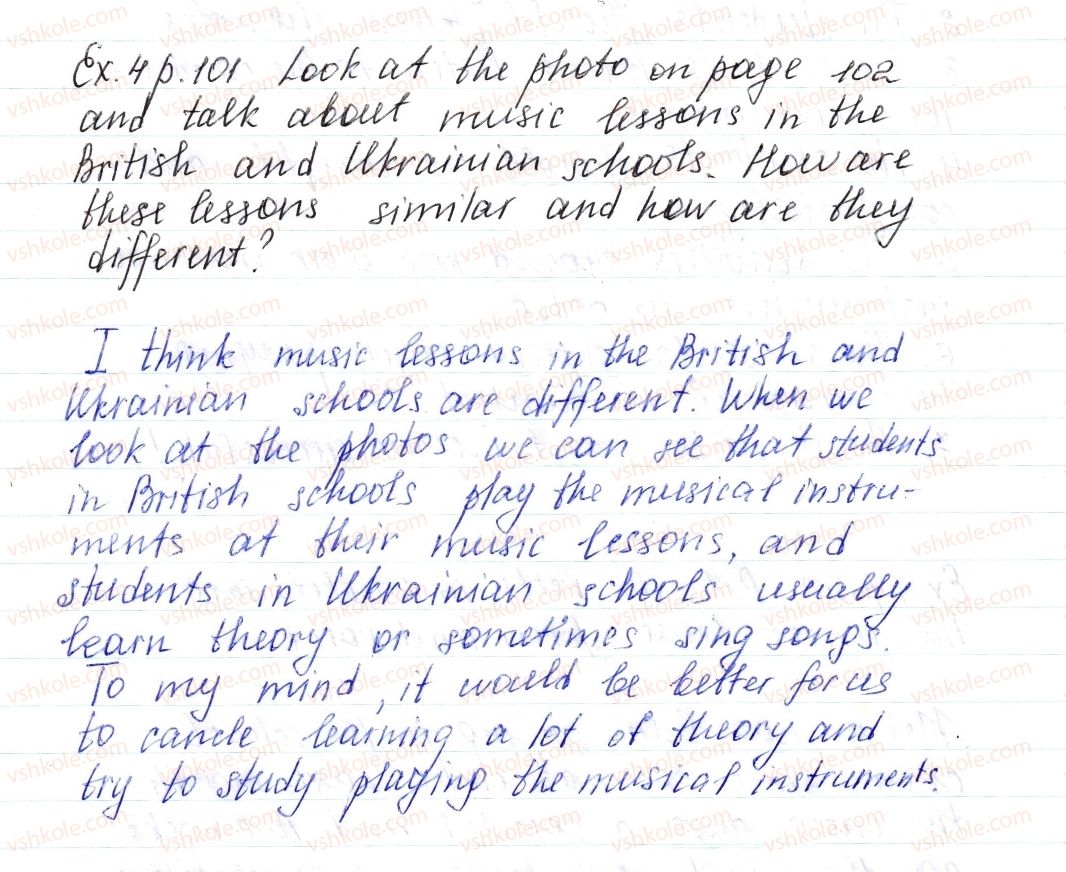 Ex. 4 p. 101 Look at the photo on page 102
and talk about music lessons in the
British and Ukrainian schools. How are
these lessons similar and how are they
different?
I think music lessons in the British and
Ukrainian schools are different. When we
look at the photos we can see that students
in British schools play the musical instru-
ments at their music lessons, and
students in Ukrainian schools usually
learn theory or sometimes sing songs.
To my mind, it would be better for us
to cancle learning a lot of theory and
try to study playing the musical instruments.